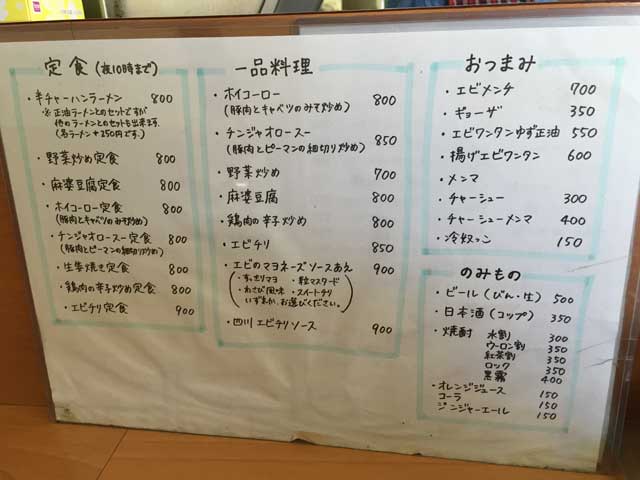 定食(夜10時まで)
・半チャーハンラーメン 800
※正油ラーメンとのセットですが
他のラーメンとのセットも出来ます。
(各ラーメン+250円です。)
・野菜炒め定食 800
・麻婆豆腐定食 800
・ホイコーロー定食 800
(豚肉とキャベツのみそ炒め)
・チンジャオロースー定食 800
(豚肉とピーマンの細切り炒め)
・生姜焼き定食 800
・鶏肉の辛子炒め定食 800
・エビチリ定食 900
一品料理
・ホイコーロー 800
(豚肉とキャベツのみそ炒め)
・チンジャオロースー 850
(豚肉とピーマンの細切り炒め)
・野菜炒め 700
・麻婆豆腐 800
・鶏肉の辛子炒め 800
・エビチリ 850
・エビのマヨネーズソースあえ 900
(・すっきりマヨ ・粒マスタード
・わさび風味 ・スイートチリ
いずれか、お選びください。)
・四川エビチリソース 900
おつまみ
・エビメンチ 700
・ギョーザ 350
・エビワンタンゆず正油 550
・揚げエビワンタン 600
・メンマ
・チャーシュー 300
・チャーシューメンマ 400
・冷奴 150
のみもの
・ビール(びん・生) 500
・日本酒(コップ) 350
・焼酎 水割 300
ウーロン割 350
紅茶割 350
ロック 350
黒霧 400
・オレンジジュース 150
コーラ 150
ジンジャーエール 150